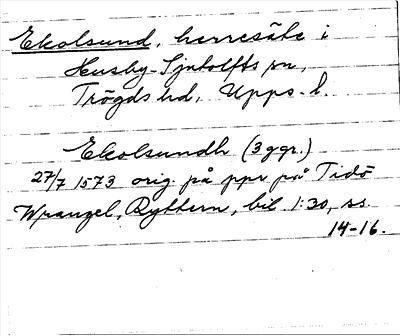 Ekolsund, herresäte i
Husby-Sjutolfts sn,
Trögds hd, Upps. l.
Ekolsundh (3 ggr.)
27/7 1573 orig. på ppr på Tidö
Wrangel, Ryttern, bil 1:30, ss.
14-16.